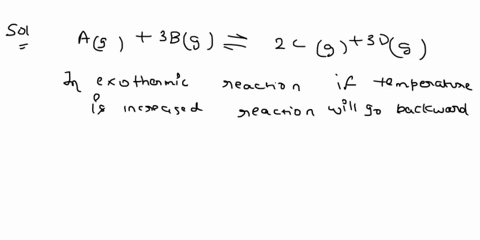 Sol A(g) + 3B(g) ⇌ 2C(g) + 3D(g)
In exothermic reaction if temperature
is increased reaction will go backward